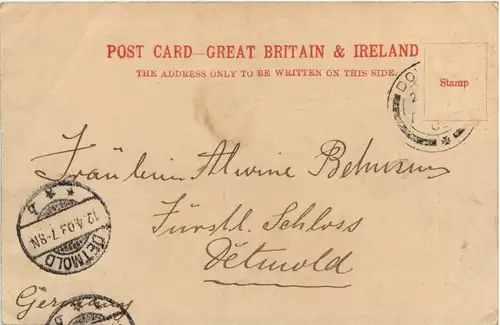 POST CARD—GREAT BRITAIN & IRELAND
THE ADDRESS ONLY TO BE WRITTEN ON THIS SIDE.
Stamp
DO
Fräulein Alwine Behmsen
Fürstl. Schloss
Detmold
Germany
DETMOLD
12.4.03.7-8N.